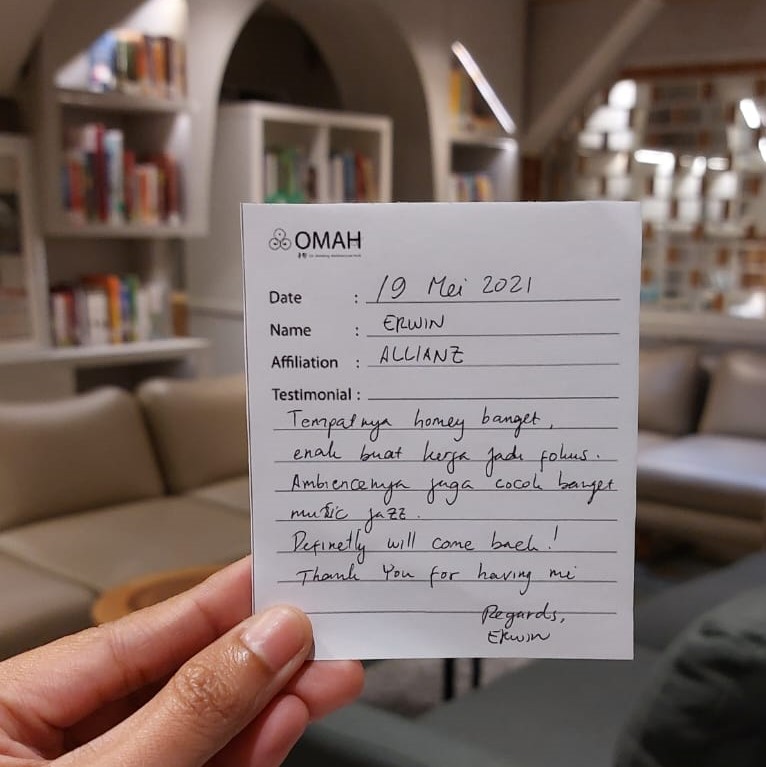 OMAH
Date : 19 Mei 2021
Name : ERWIN
Affiliation : ALLIANZ
Testimonial :
Tempatnya homey banget,
enak buat kerja jadi fokus.
Ambiencenya juga cocok banget
music jazz.
Definetly will come back!
Thank You for having me
Regards,
ERWIN